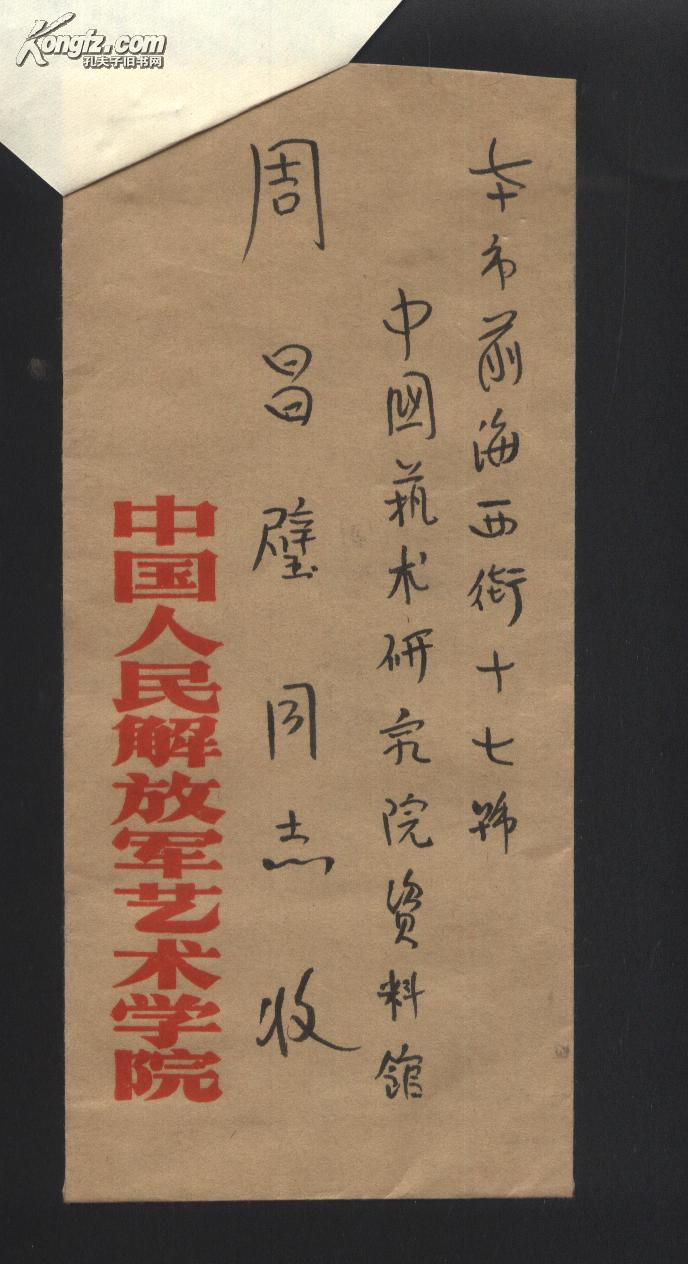 Kongfz.com
孔夫子旧书网
本市前海西街十七號
中國藝术研究院資料馆
周昌璧同志收
中国人民解放军艺术学院